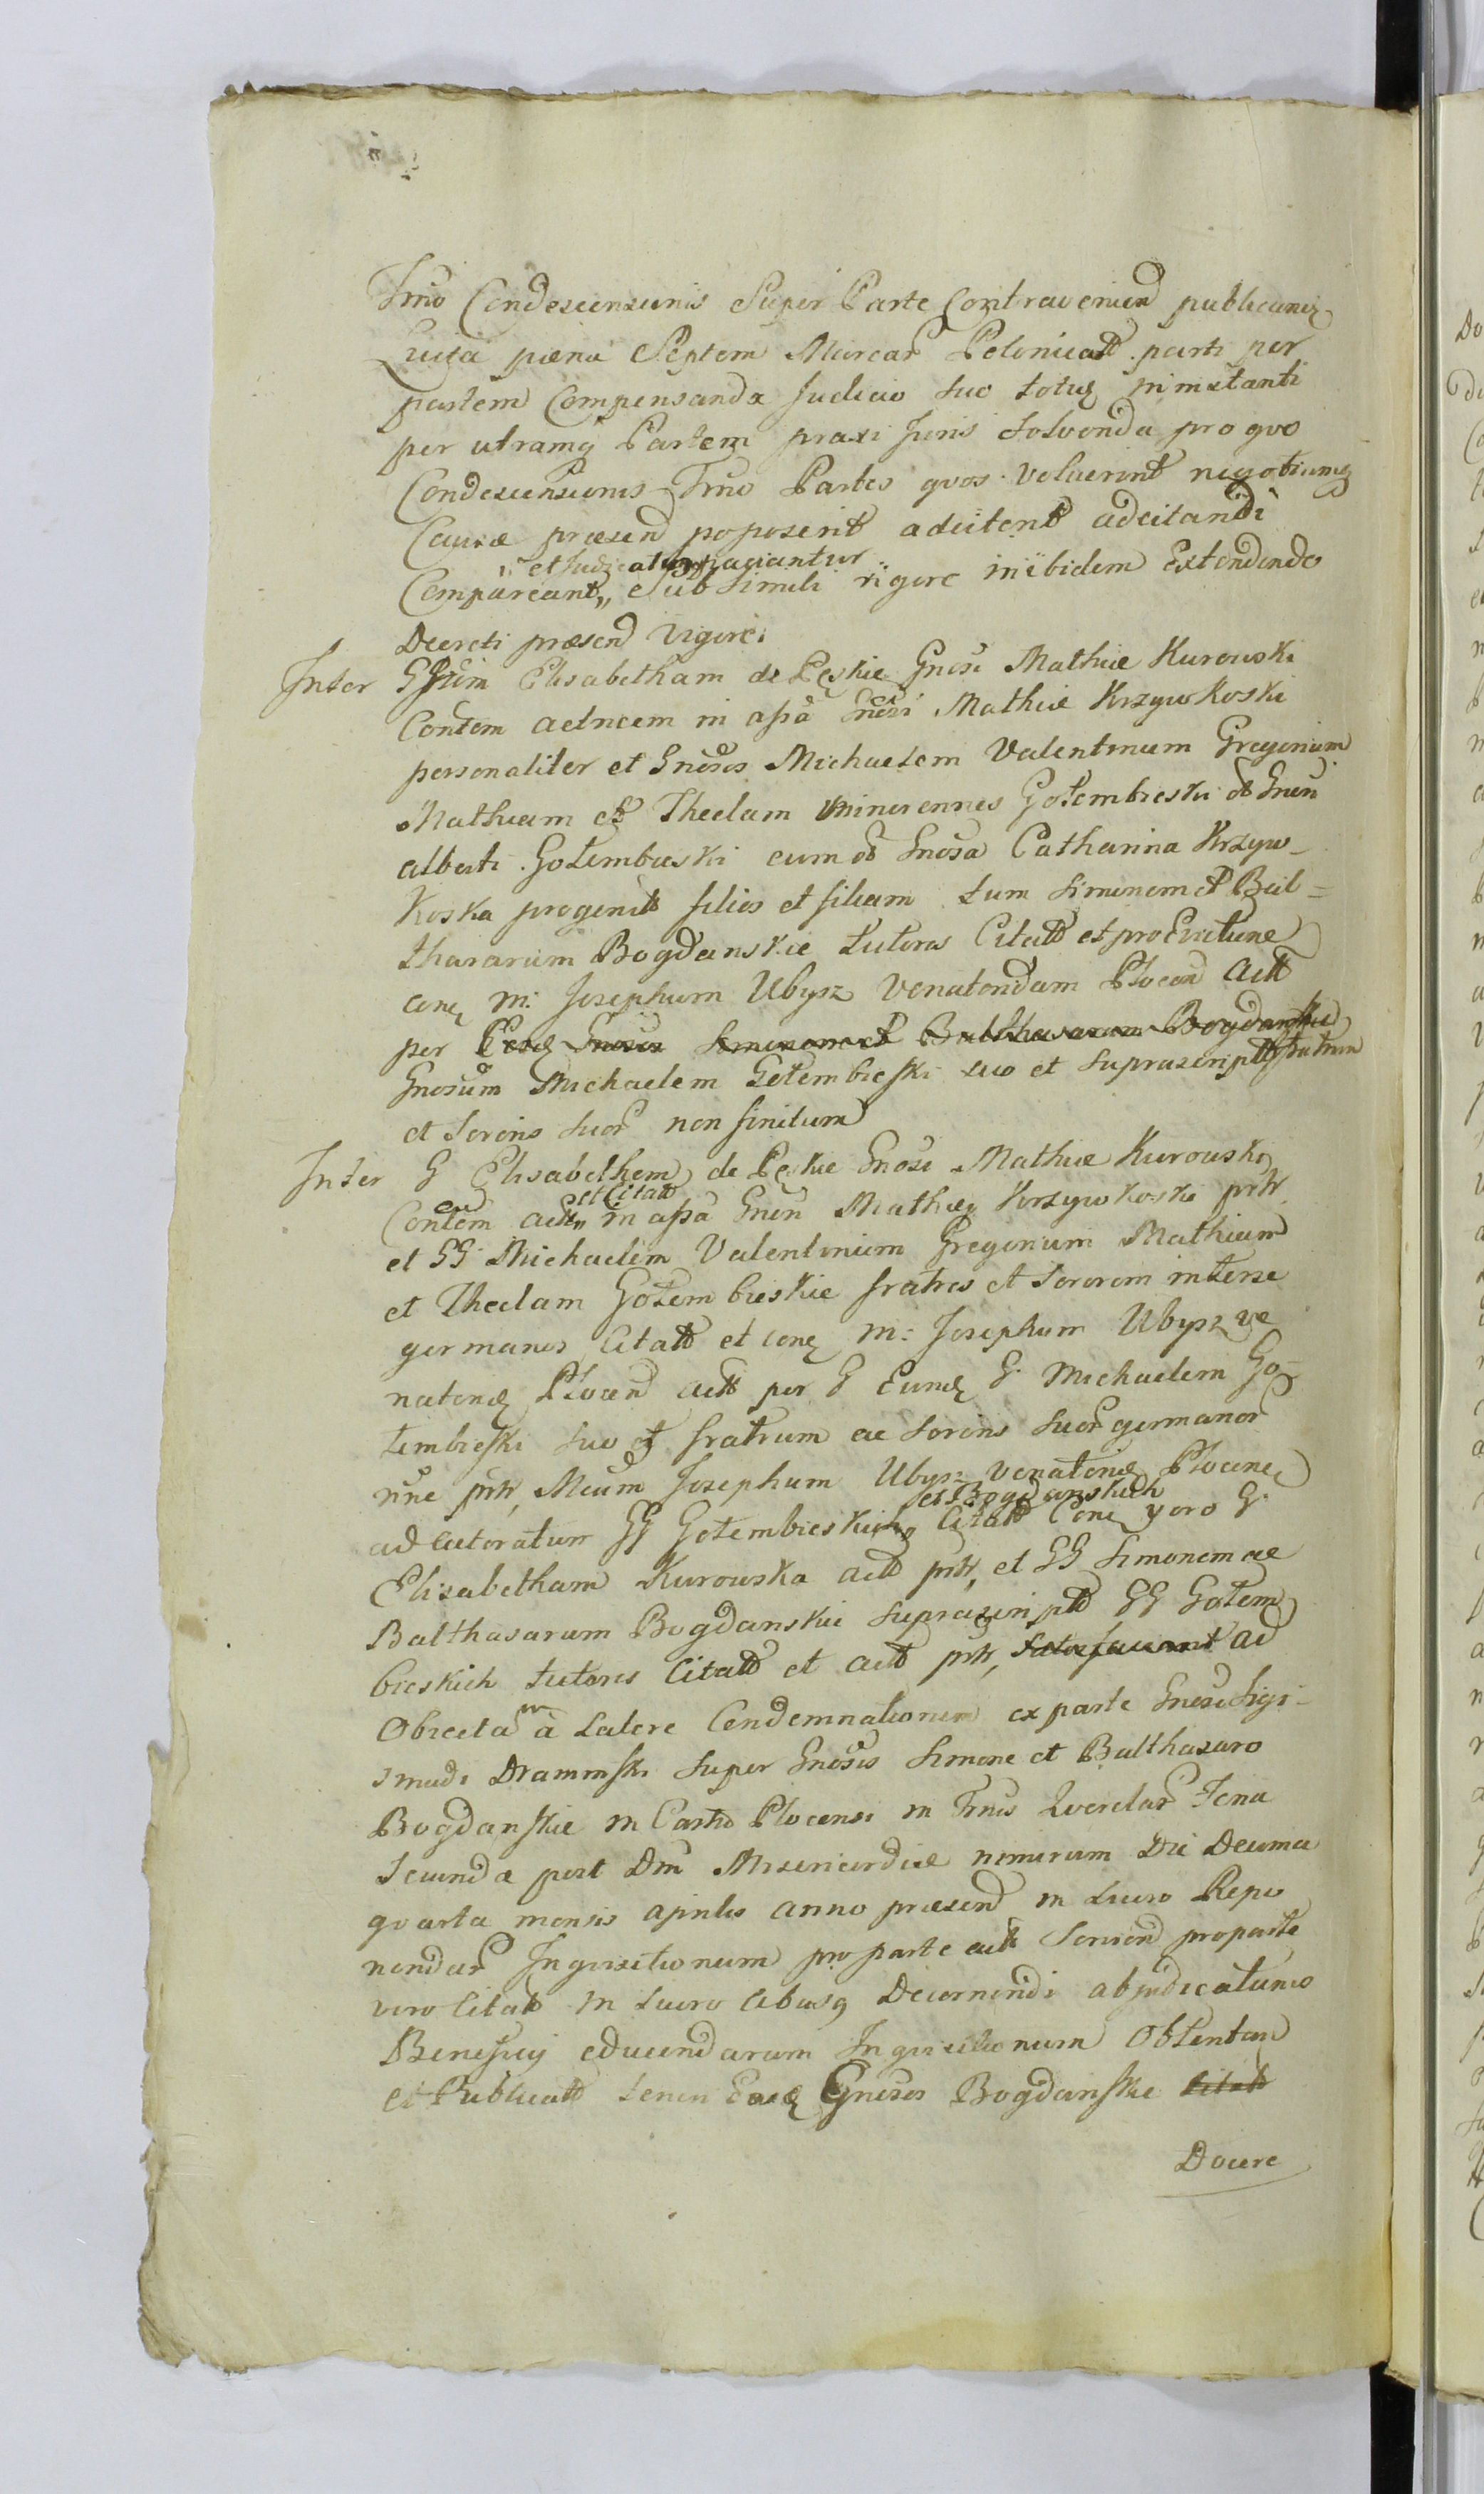 Trno Condescensionis Super Parte Contravenien publicanq
Luita paena Septem Marcar Polonicat parti per
partem Compensanda Judicio suo totiq inimstanti
per utramq Partem praxi Juris solvenda pro qvo
Condescensionis Trno Partes qvos voluerint negotiumq
Causae praesen poposerit adcitent adcitandi
et Judicatum paciantur
Compareant,, Sub simili rigore inibidem Extendendo
Decreti praesen Vigore.
Inter Elisabetham de Pęskie Gnosi Mathiae Kurowski
Contem actricem in assa Gnosi Mathiae Krzywkoski
personaliter et Gnosos Michaelem Valentinum Gregorium
Mathiam et Theclam minorennes Gołembieski ol Gnen
Alberti Gołembieski cum ol Gnosa Catharina Krzyw-
koska progenit filios et filiam tum Simonem et Bal=
thazarum Bogdanskie tutores Citatt et pro Evictione
conq M: Josephum Ubysz Venatoridam Plocen Actt
per Eosd Gnosos Simonem et Balthasarum Bogdanskie
Gnosum Michaelem Gołembieski suo et suprascriptt fratrum
et Sororis suor non finitum
Inter G Elisabetham de Pęskie Gnosi Mathiae Kurowski
et Citatt
Contem act,, in assa Gnen Mathiae Krzywkoski prtt
et GG Michaelem Valentinum Gregorium Mathiam
et Theclam Gołembieskie fratres et Sororem interse
germanos Citatt et conq M: Josephum Ubysz ve
natorid Plocen actt per G Eund G. Michaelem Go-
łembieski suo et fratrum ac Sororis suor germanor
nne prtt, Mcum Josephum Ubysz Venatorid Plocenę
et Bogdanskich
ad Actoratum GG Gołembieskich,, Citatt Conq vero G.
Elisabetham Kurowska actt prtt, et GG Simonem ac
Balthasarum Bogdanskie suprascriptt GG Gołem
bieskich tutores Citatt et actt prtt, Satisfaciant ad
Obiecta m à Latere Condemnationem ex parte Gnosi Sigi-
smudi Dramiński super Gnosis Simone et Balthazaro
Bogdanskie in Castro Plocensi in Trnis Qverelar Feria
Secunda post Dm Misericordiae nimirum Die Decima
qvarta mensis Aprilis anno praesen in Lucro Repo
nendar Inqvisitionum pro parte actt Servien pro parte
vero Citatt in Lucro Abusq Decernendi abjudicationis
Beneficij educendarum Inqvisitionum Obtentam
et Publicatt tenen Eosd Gnosos Bogdanskie Citatt
Docere